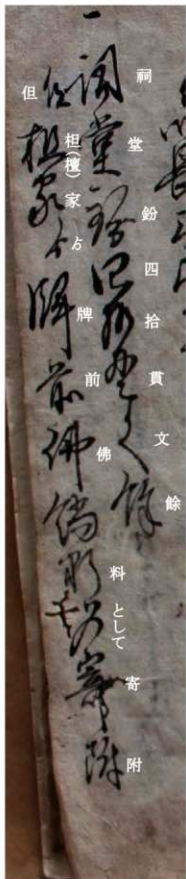 一
祠堂鈖四拾貫文餘
但担(檀)家ゟ牌前佛餉料として寄附